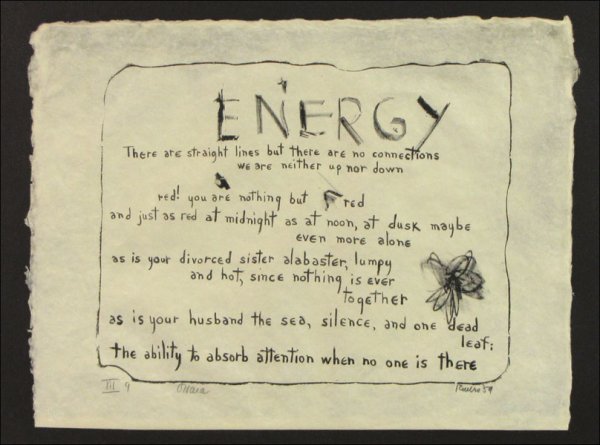 ENERGY
There are straight lines but there are no connections
we are neither up nor down
red! you are nothing but red
and just as red at midnight as at noon, at dusk maybe
even more alone
as is your divorced sister alabaster, lumpy
and hot, since nothing is ever
together
as is your husband the sea, silence, and one dead
leaf:
the ability to absorb attention when no one is there
III 9 O'Hara Rivers 59